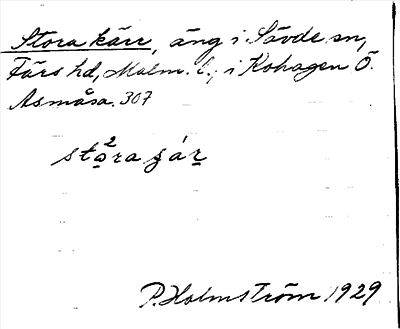 Stora kärr, äng i Sövde sn,
Färs hd, Malm. l., i Kohagen Ö.
Asmåsa. 307
sto²ra gár
P. Holmström 1929